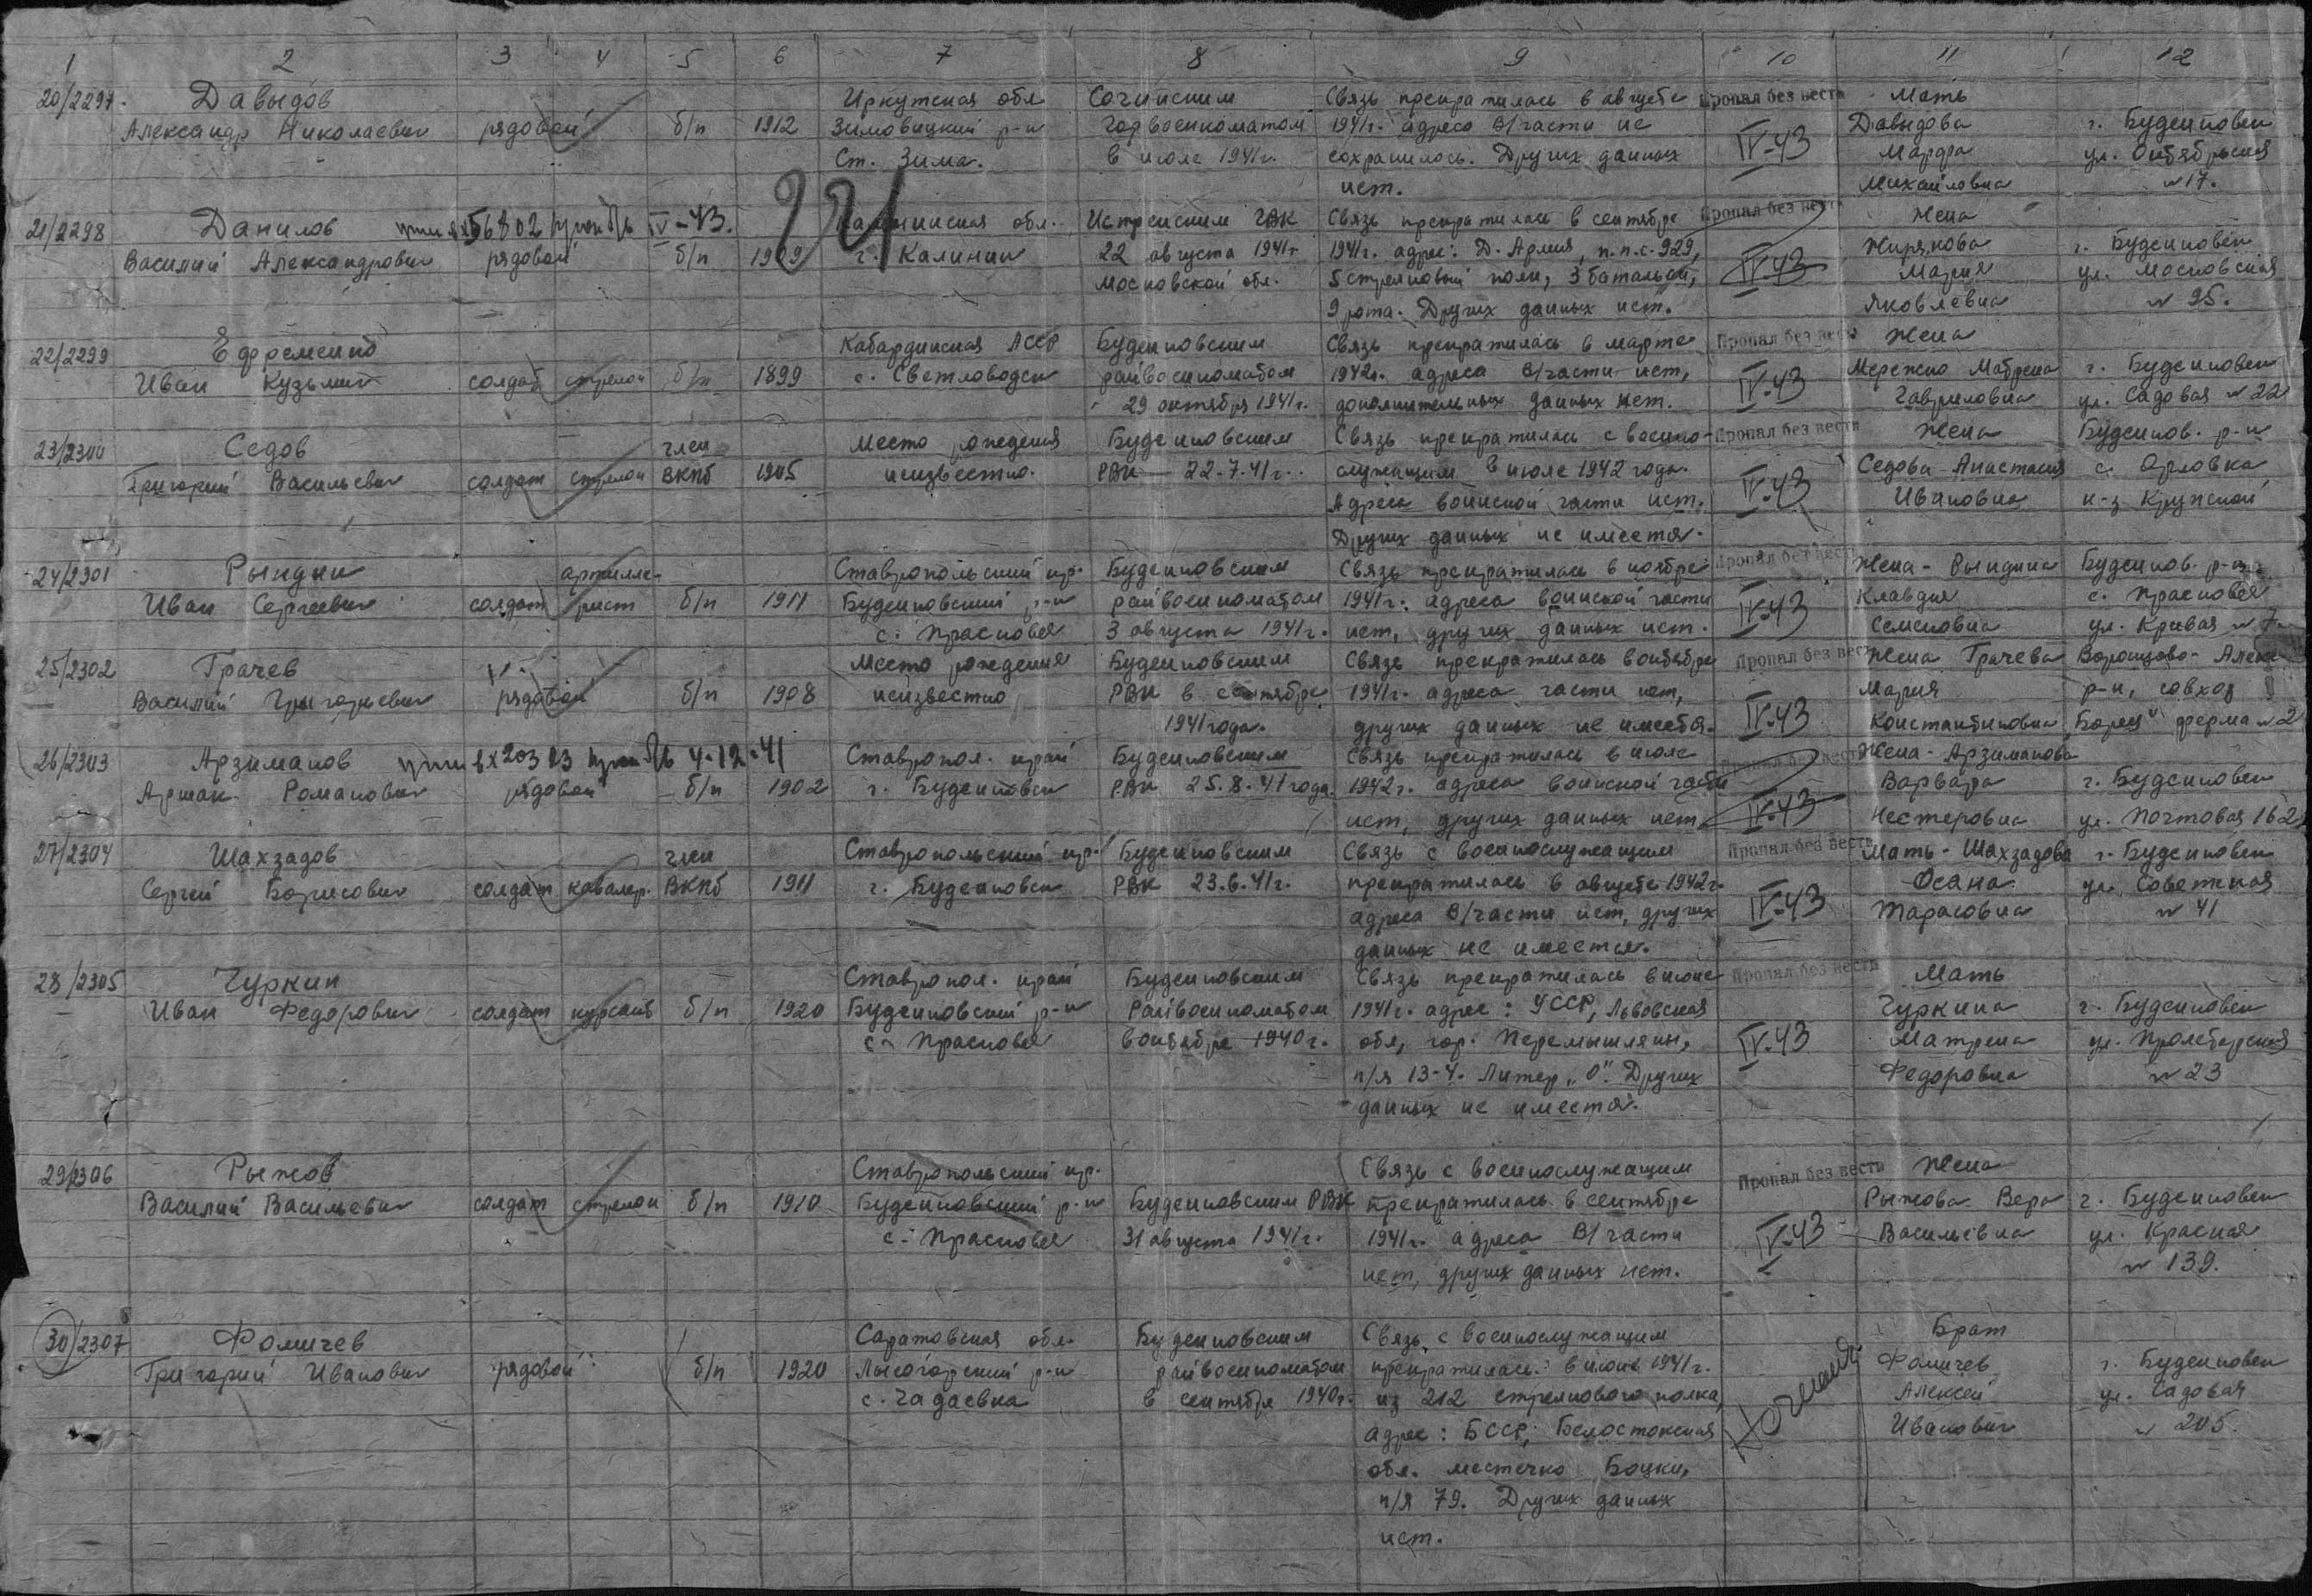 1 2 3 4 5 6 7 8 9 10 11 12
20/2297. Давыдов Александр Николаевич рядовой б/п 1912 Иркутская обл Зимовицкий р-н Ст. Зима. Сочинским Горвоенкоматом в июле 1941г. Связь прекратилась в августе 1941г. адреса в/части не сохранилось. Других данных нет. Пропал без вести IV-43 Мать Давыдова Марфа Михайловна г. Буденновск ул. Октябрьская №17.
21/2298 Данилов IV-43. Василий Александрович рядовой б/п 1909 Калининская обл. г. Калинин Истринским ГВК 22 августа 1941г Московской обл. Связь прекратилась в сентябре 1941г. адрес: Д. Армия, п.п.с. 929, 5 стрелковый полк, 3 батальон, 9 рота. Других данных нет. Пропал без вести IV-43 Жена Жирякова Мария Яковлевна г. Буденновск ул. Московская № 95.
22/2299 Ефременко Иван Кузьмич солдат стрелок б/п 1899 Кабардинская АССР с. Светловодск Буденновским райвоенкоматом 29 октября 1941г. Связь прекратилась в марте 1942г. адреса в/части нет, дополнительных данных нет. Пропал без вести IV-43 Жена Мережко Матрена Гавриловна г. Буденновск ул. Садовая № 22
23/2300 Седов Григорий Васильевич солдат стрелок член ВКПб 1905 Место рождения неизвестно. Буденновским РВК 22.7.41г. Связь прекратилась с военно-служащим в июле 1942 года. Адреса воинской части нет. Других данных не имеется. Пропал без вести IV-43 Жена Седова Анастасия Ивановна Буденнов. р-н с. Орловка к-з Кружской
24/2301 Рындин Иван Сергеевич солдат артиллерист б/п 1911 Ставропольский кр. Буденновский р-н с. Прасковея Буденновским райвоенкоматом 3 августа 1941г. Связь прекратилась в ноябре 1941г. адреса воинской части нет, других данных нет. Пропал без вести IV-43 Жена - Рындина Клавдия Семеновна Буденнов. р-н с. Прасковея ул. Кривая № 7.
25/2302 Грачев Василий Григорьевич рядовой б/п 1908 Место рождения неизвестно Буденновским РВК в сентябре 1941 года. Связь прекратилась в октябре 1941г. адреса части нет, других данных не имеется. Пропал без вести IV-43 Жена Грачева Мария Константиновна Воронцово-Алекс. р-н, совхоз „Борец" ферма №2
26/2303 Арзиманов 4-12-41 Аршак Романович рядовой б/п 1902 Ставропол. край г. Буденновск Буденновским РВК 25.8.41 года. Связь прекратилась в июле 1942г. адреса воинской части нет, других данных нет. Пропал без вести IV-43 Жена - Арзиманова Варвара Нестеровна г. Буденновск ул. Почтовая 162
27/2304 Шахзадов Сергей Борисович солдат кавалер. член ВКПб 1911 Ставропольский кр. г. Буденновск Буденновским РВК 23.6.41г. Связь с военнослужащим прекратилась в августе 1942г. адреса в/части нет, других данных не имеется. Пропал без вести IV-43 Мать - Шахзадова Осана Тарасовна г. Буденновск ул. Советская № 41
28/2305 Чуркин Иван Федорович солдат курсант б/п 1920 Ставропол. край Буденновский р-н с. Прасковея Буденновским Райвоенкоматом в октябре 1940г. Связь прекратилась в июне 1941г. адрес: УССР, Львовская обл, гор. Перемышляны, п/я 13-4. Литер „О". Других данных не имеется. Пропал без вести IV-43 Мать Чуркина Матрена Федоровна г. Буденновск ул. Пролетарская № 23
29/2306 Рыжов Василий Васильевич солдат стрелок б/п 1910 Ставропольский кр. Буденновский р-н с. Прасковея Буденновским РВК 31 августа 1941г. Связь с военнослужащим прекратилась в сентябре 1941г. адреса в/части нет, других данных нет. Пропал без вести IV-43 Жена Рыжова Вера Васильевна г. Буденновск ул. Красная № 139.
30/2307 Фомичев Григорий Иванович рядовой б/п 1920 Саратовская обл. Лысогорский р-н с. Чадаевка Буденновским райвоенкоматом в сентябре 1940г. Связь с военнослужащим прекратилась в июне 1941г. из 212 стрелкового полка, адрес: БССР, Белостокская обл. местечко Боцки, п/я 79. Других данных нет. Брат Фомичев Алексей Иванович г. Буденновск ул. Садовая № 205.